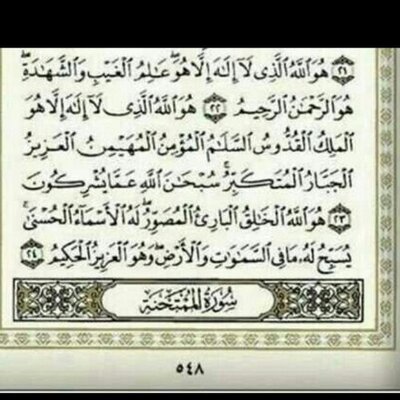 ٢١ هُوَ اللَّهُ الَّذِى لَآ إِلَـٰهَ إِلَّا هُوَ ۖ عَـٰلِمُ الْغَيْبِ وَالشَّهَـٰدَةِ ۖ
هُوَ الرَّحْمَـٰنُ الرَّحِيمُ ٢٢ هُوَ اللَّهُ الَّذِى لَآ إِلَـٰهَ إِلَّا هُوَ
الْمَلِكُ الْقُدُّوسُ السَّلَـٰمُ الْمُؤْمِنُ الْمُهَيْمِنُ الْعَزِيزُ
الْجَبَّارُ الْمُتَكَبِّرُ ۚ سُبْحَـٰنَ اللَّهِ عَمَّا يُشْرِكُونَ
٢٣ هُوَ اللَّهُ الْخَـٰلِقُ الْبَارِئُ الْمُصَوِّرُ ۖ لَهُ الْأَسْمَآءُ الْحُسْنَىٰ ۚ
يُسَبِّحُ لَهُۥ مَا فِى السَّمَـٰوَٰتِ وَالْأَرْضِ ۖ وَهُوَ الْعَزِيزُ الْحَكِيمُ ٢٤
سُورَةُ الْمُمْتَحَنَةِ
٥٤٨